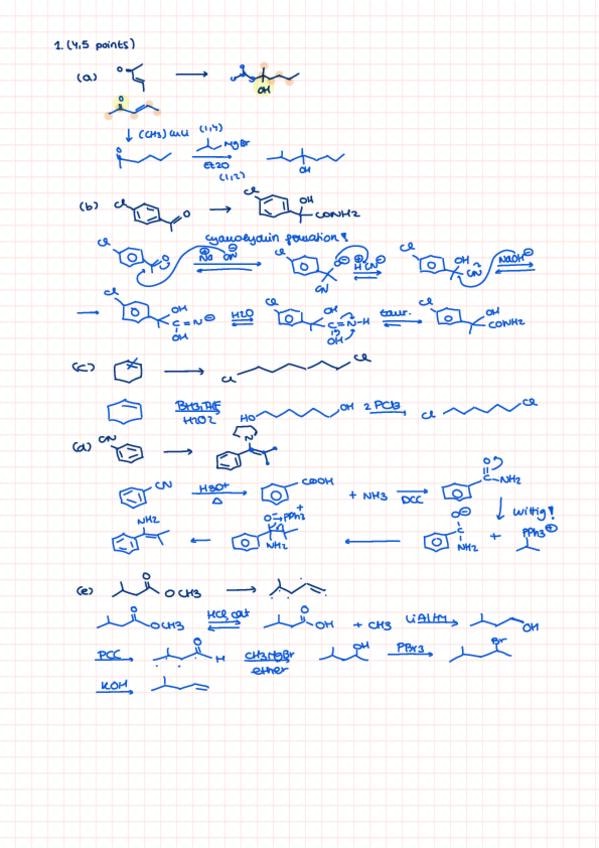 1. (4,5 points)
(a) O → OH
O
↓ (CH3)2CuLi (1,4)
O MgBr
Et2O
(1,2) OH
(b) Cl O → Cl OH CONH2
cyanohydrin formation!
Cl O Na⊕ CN⊖ Cl O⊖ CN H⊕ CN⊖ Cl OH CN NaOH⊖
→ Cl OH C=N⊖ OH H2O Cl OH C=N-H OH taut. Cl OH CONH2
(c) → Cl Cl
BH3,THF H2O2 HO OH 2 PCl3 Cl Cl
(d) CN → N
CN H3O+ Δ COOH + NH3 DCC O C-NH2
↓ Wittig!
NH2 ← O-PPh3+ NH2 ← O⊖ C NH2 + PPh3⊕
(e) O OCH3 →
O OCH3 HCl, cat O OH + CH3 LiAlH4 OH
PCC O H CH3MgBr ether OH PBr3 Br
KOH